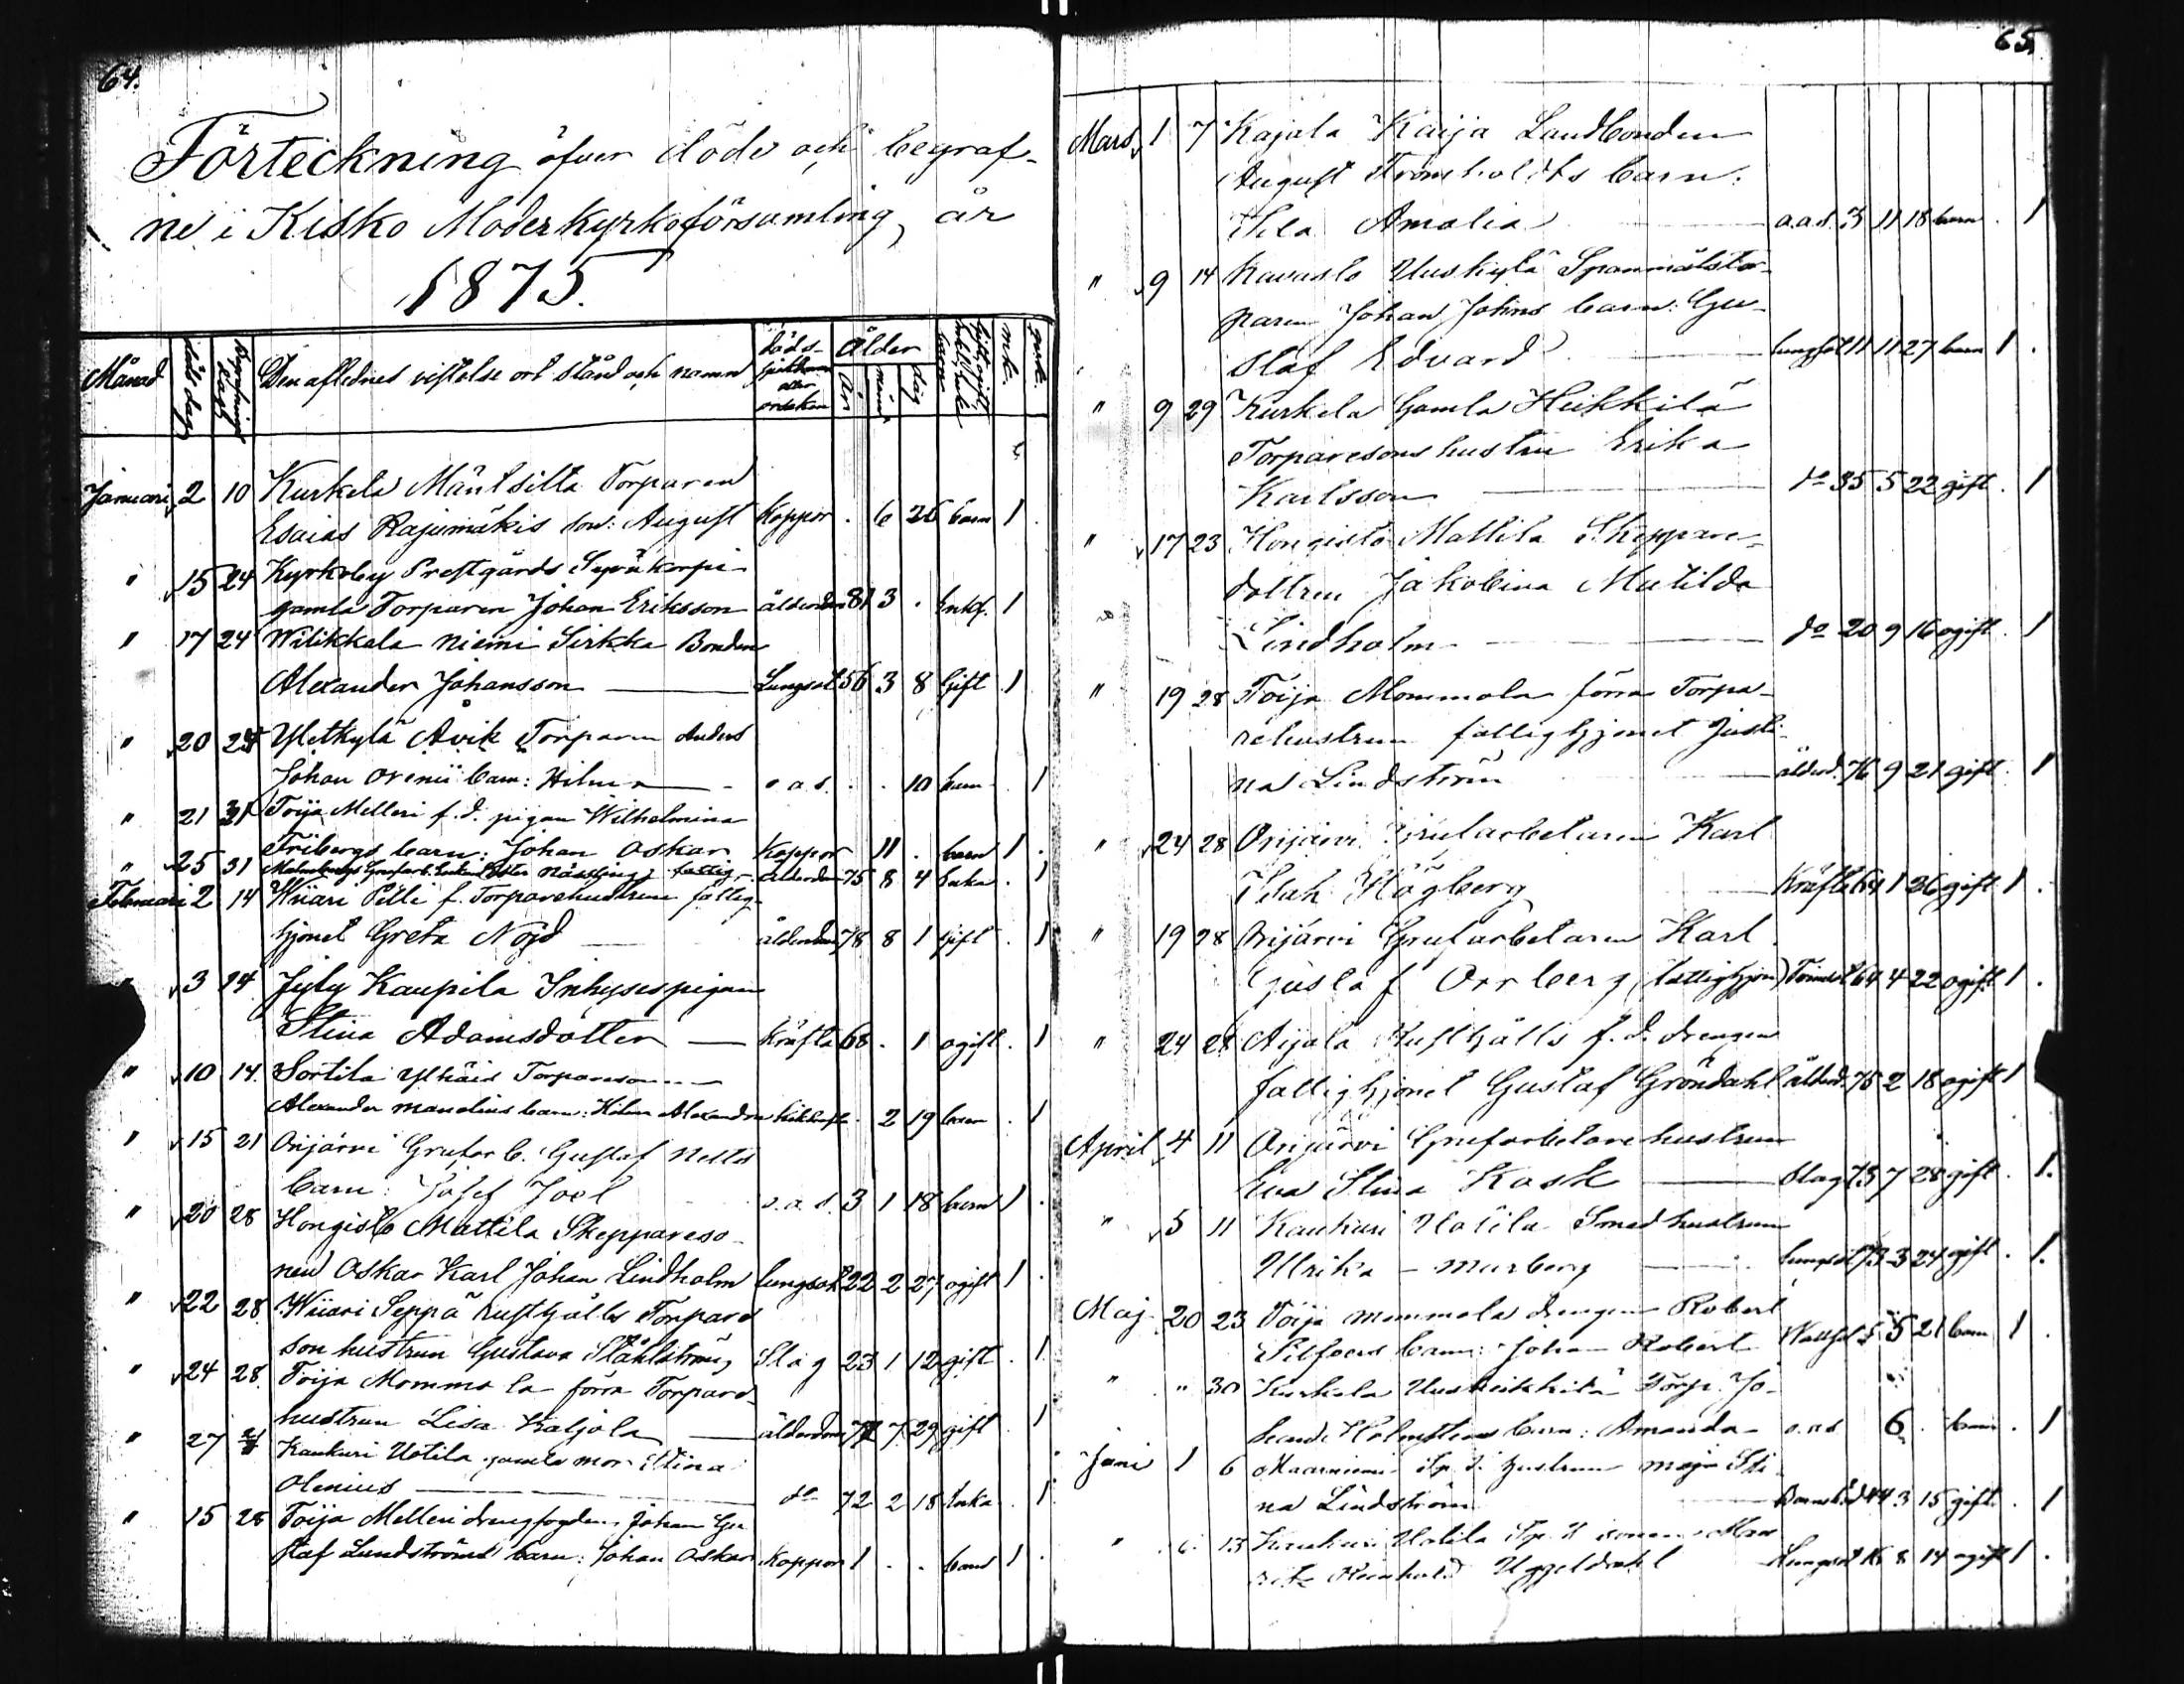 64.
Förteckning öfver döde och begraf-
ne i Kisko Moderkyrkoförsamling, år
1875.
Månad döds dag Begrafnings dag Den aflednes vistelse ort stånd och namn döds- sjukdom eller orsaken Ålder År mån dag mk. qvk.
Januari 2 10 Kurkela Mäntsilta Torparen
Esaias Rajamäkis son: August Koppor . 6 26 barn 1 .
" 15 24 Kyrkoby Prestgårds Syväkorpi
gamla Torparen Johan Eriksson ålderdom 81 3 . Enkl. 1
" 17 24 Wilikkala Niemi Sirkka Bonden
Alexander Johansson Lungsot 56 3 8 Gift 1
" 20 24 Yletkylä Åvik Torparen Anders
Johan Orenii barn: Hilma o.a.s. . . 10 barn . 1
" 21 31 Toija Melleri f.d. pigan Wilhelmina
Fribergs barn: Johan Oskar Koppor 11 . barn 1 .
" 25 31 ålderdom 75 8 4 Enka . 1
Februari 2 14 Wiiari Pilli f. Torparehustrun fattig-
hjonet Greta Nöjd ålderdom 78 8 1 Gift . 1
" 3 14 Jyly Kaupila Inhysespigan
Stina Adamsdotter Kräfta 68 . 1 ogift . 1
" 10 14. Sortila Torpareson
Alexander Manelius barn: Hilma Alexandra Kikhosta . 2 19 barn . 1
" 15 21 Orijärvi Grufarb. Gustaf
barn: Josef Joel o.a.s. 3 1 18 barn 1 .
" 20 28 Hongisto Mattila Skeppareso-
nen Oskar Karl Johan Lindholm Lungsot 22 2 27 ogift 1 .
" 22 28. Wiiari Seppä Rusthålls Torpare
son hustrun Gustava Ståhlström Slag 23 1 12 gift . 1
" 24 28. Toija Mommola förra Torpare
hustrun Lisa Kaljola ålderdom 7 29 gift . 1
" 27 Kaukuri Uotila gamla mor Stina
Olenius do 72 2 18 Enka . 1
" 15 28 Toija Melleri drengfogden Johan Gu-
staf Lundströms barn: Johan Oskar Koppor 1 . . barn 1 .
65.
Mars 1 7 Kajala Kaija Landbonden
August Fromholdts barn:
Ida Amalia o.a.s. 3 11 18 barn . 1
" 9 14 Kavasto Uuskylä Spanmålstor-
paren Johan Johns barn: Gu-
staf Edvard Lungsot 11 11 27 barn 1 .
" 9 29 Kurkela Gamla Heikkilä
Torparesonshustru Erika
Karlsson do 35 5 22 gift . 1
" 17 23 Hongisto Mattila Skeppare-
dottren Jakobina Matilda
Lindholm do 20 9 16 ogift . 1
" 19 28 Toija Mommola förra Torpa-
rehustrun fattighjonet Justi-
na Lindström ålderd. 76 9 21 gift . 1
" 24 28 Orijärvi Grufarbetaren Karl
Isak Högberg Kräfta 64 1 26 gift 1 .
" 19 28 Orijärvi Grufarbetaren Karl
Gustaf Orrberg (fattighjon) 64 4 22 ogift 1 .
" 24 28 Aijala Rusthålls f.d. drengen
fattighjonet Gustaf Gröndahl ålderd. 75 2 18 ogift 1
April 4 11 Orijärvi Grufarbetarehustrun
Eva Stina Kask Slag 73 7 28 gift . 1.
" 5 11 Kaukuri Uotila Smedhustrun
Ulrika Murberg Lungsot 73 3 24 gift . 1.
Maj 20 23 Toija Mommola drengen Robert
Silfvers barn: Johan Robert Wattsot 5 5 21 barn 1 .
" " 30 Kurkela Uusheikkilä Torp. Jo-
Holmstens barn: Amanda o.a.s. 6 . barn . 1
Juni 1 6 hustrun Maja Sti-
na Lindström Barnsbörd 44 3 15 gift . 1
" 6 13 Kaukuri Uotila
Uggeldahl Lungsot 16 8 14 ogift 1 .